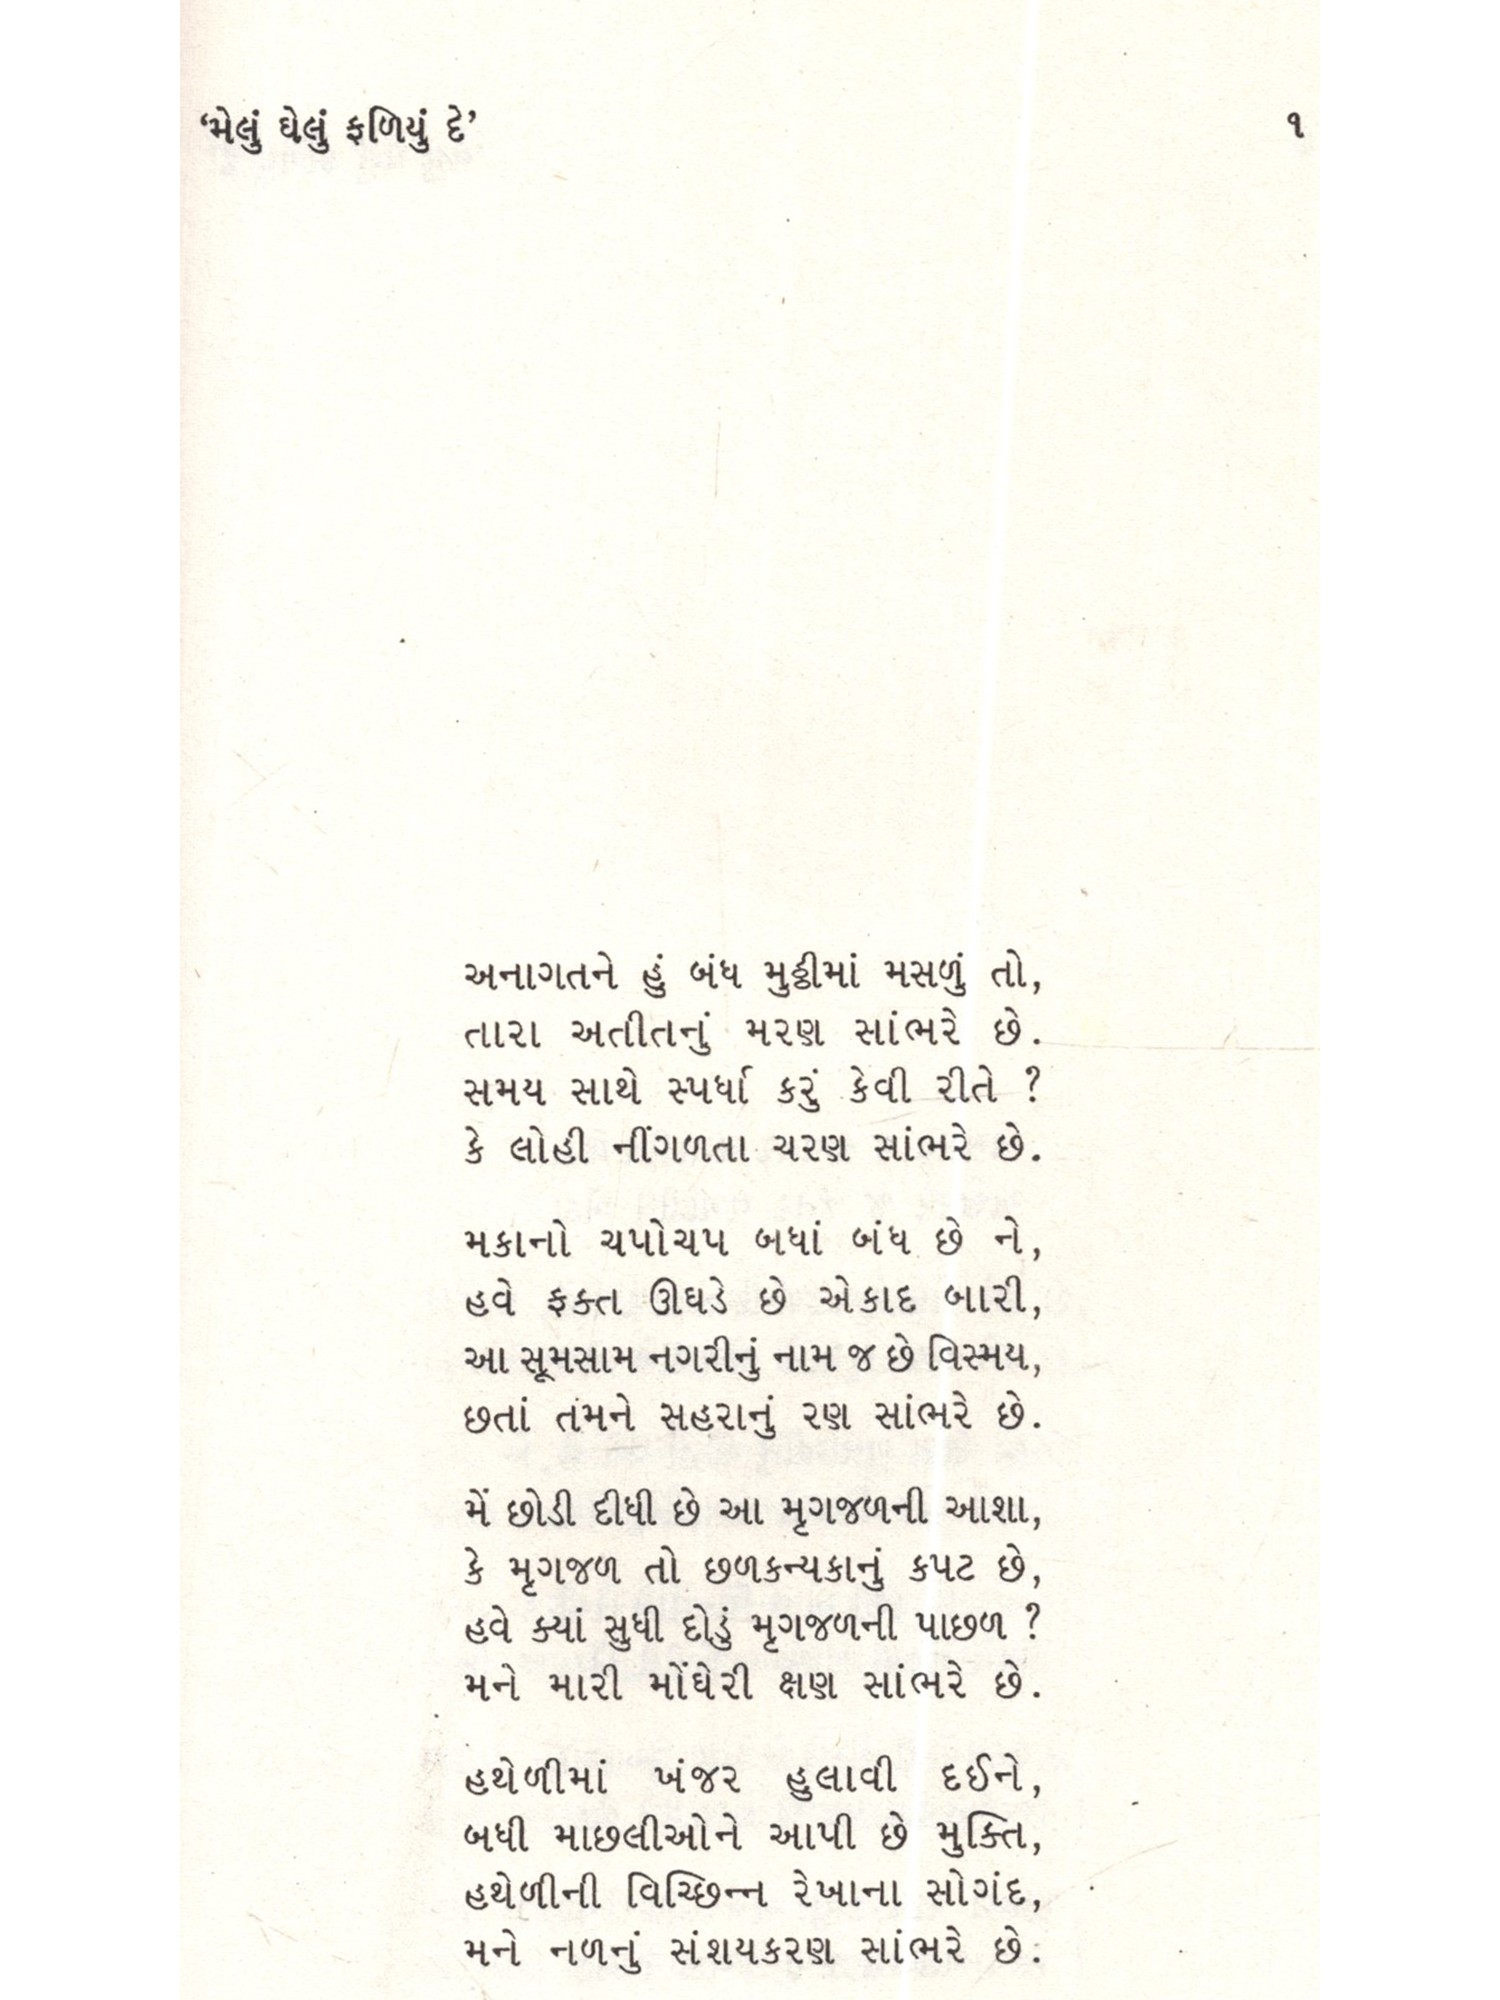 ‘મેલું ઘેલું ફળિયું દે’ ૧
અનાગતને હું બંધ મુઠ્ઠીમાં મસળું તો,
તારા અતીતનું મરણ સાંભરે છે.
સમય સાથે સ્પર્ધા કરું કેવી રીતે ?
કે લોહી નીંગળતા ચરણ સાંભરે છે.
મકાનો ચપોચપ બધાં બંધ છે ને,
હવે ફક્ત ઊઘડે છે એકાદ બારી,
આ સૂમસામ નગરીનું નામ જ છે વિસ્મય,
છતાં તમને સહરાનું રણ સાંભરે છે.
મેં છોડી દીધી છે આ મૃગજળની આશા,
કે મૃગજળ તો છળકન્યકાનું કપટ છે,
હવે ક્યાં સુધી દોડું મૃગજળની પાછળ ?
મને મારી મોંઘેરી ક્ષણ સાંભરે છે.
હથેળીમાં ખંજર હુલાવી દઈને,
બધી માછલીઓને આપી છે મુક્તિ,
હથેળીની વિચ્છિન્ન રેખાના સોગંદ,
મને નળનું સંશયકરણ સાંભરે છે.